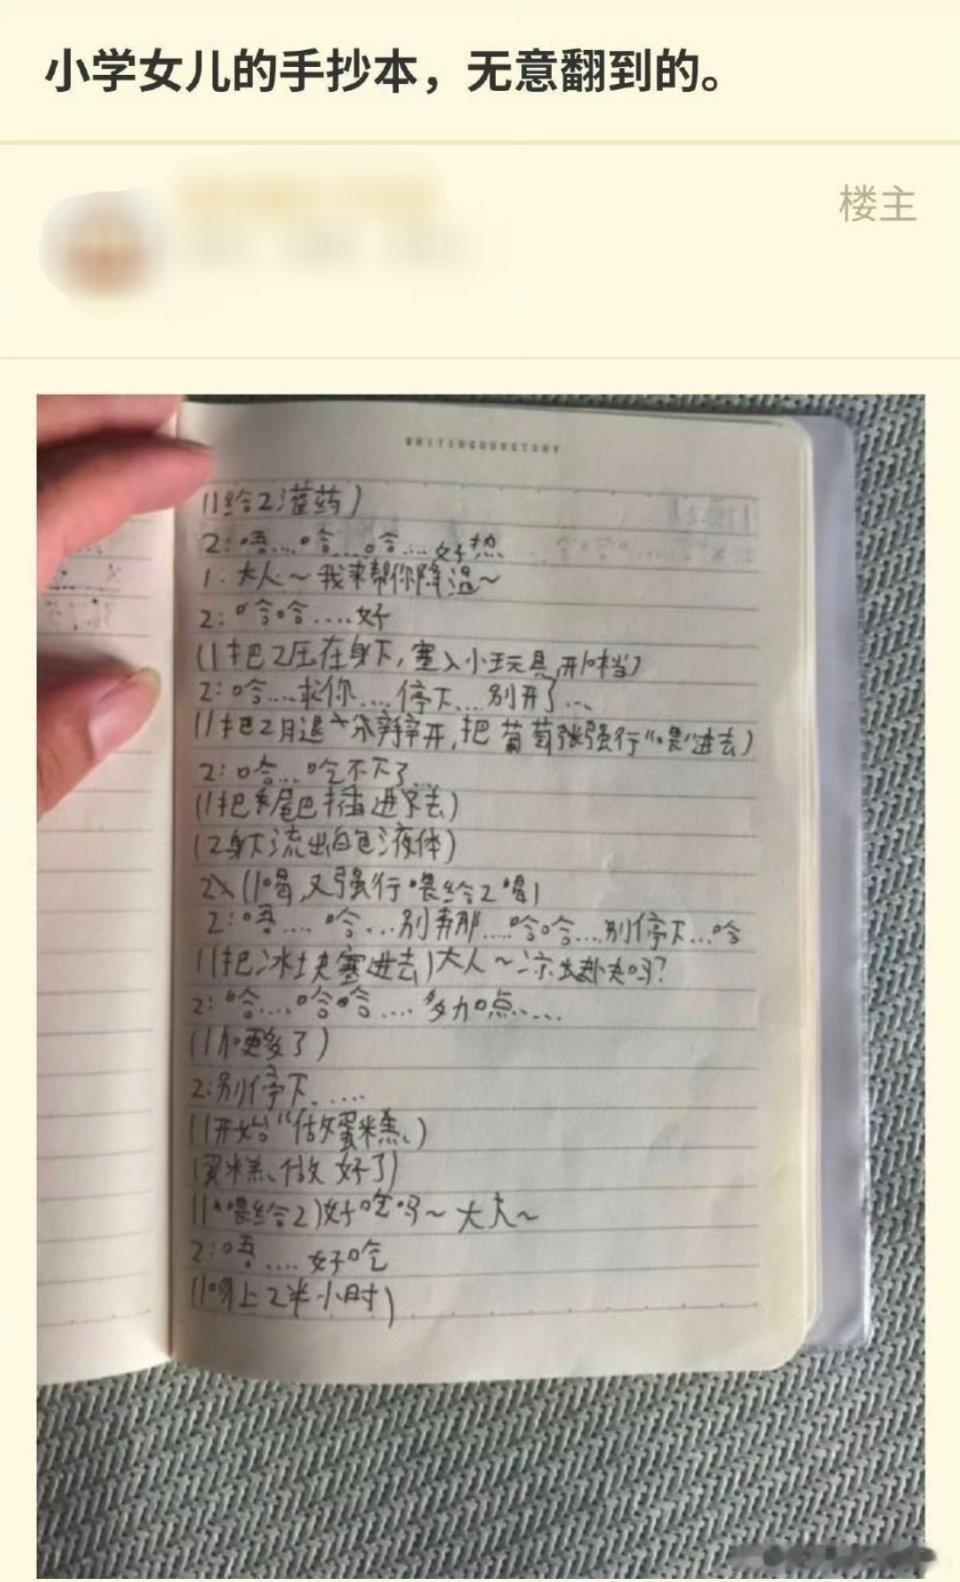 小学女儿的手抄本，无意翻到的。
楼主
WRITINGOURSTORY
(1给2灌药)
2:唔....哈....哈....好热
1:大人～我来帮你降温～
2:哈哈....好
(1把2压在身下,塞入小玩具,开1档)
2:哈....求你....停下....别开了...
(1把2腿掰开,把葡萄强行"喂"进去)
2:哈...吃不下了
(1把尾巴插进去)
(2身下流出白色液体)
(1喝,又强行喂给2喝)
2:唔....哈....别弄那....哈哈....别停下...哈
1(把冰块塞进去)大人～凉快吗?
2:哈....哈哈....多加点.....
(1加更多了)
2:别停下.....
(1开始"做蛋糕)
(蛋糕做好了)
(1喂给2)好吃吗～大人～
2:唔....好吃